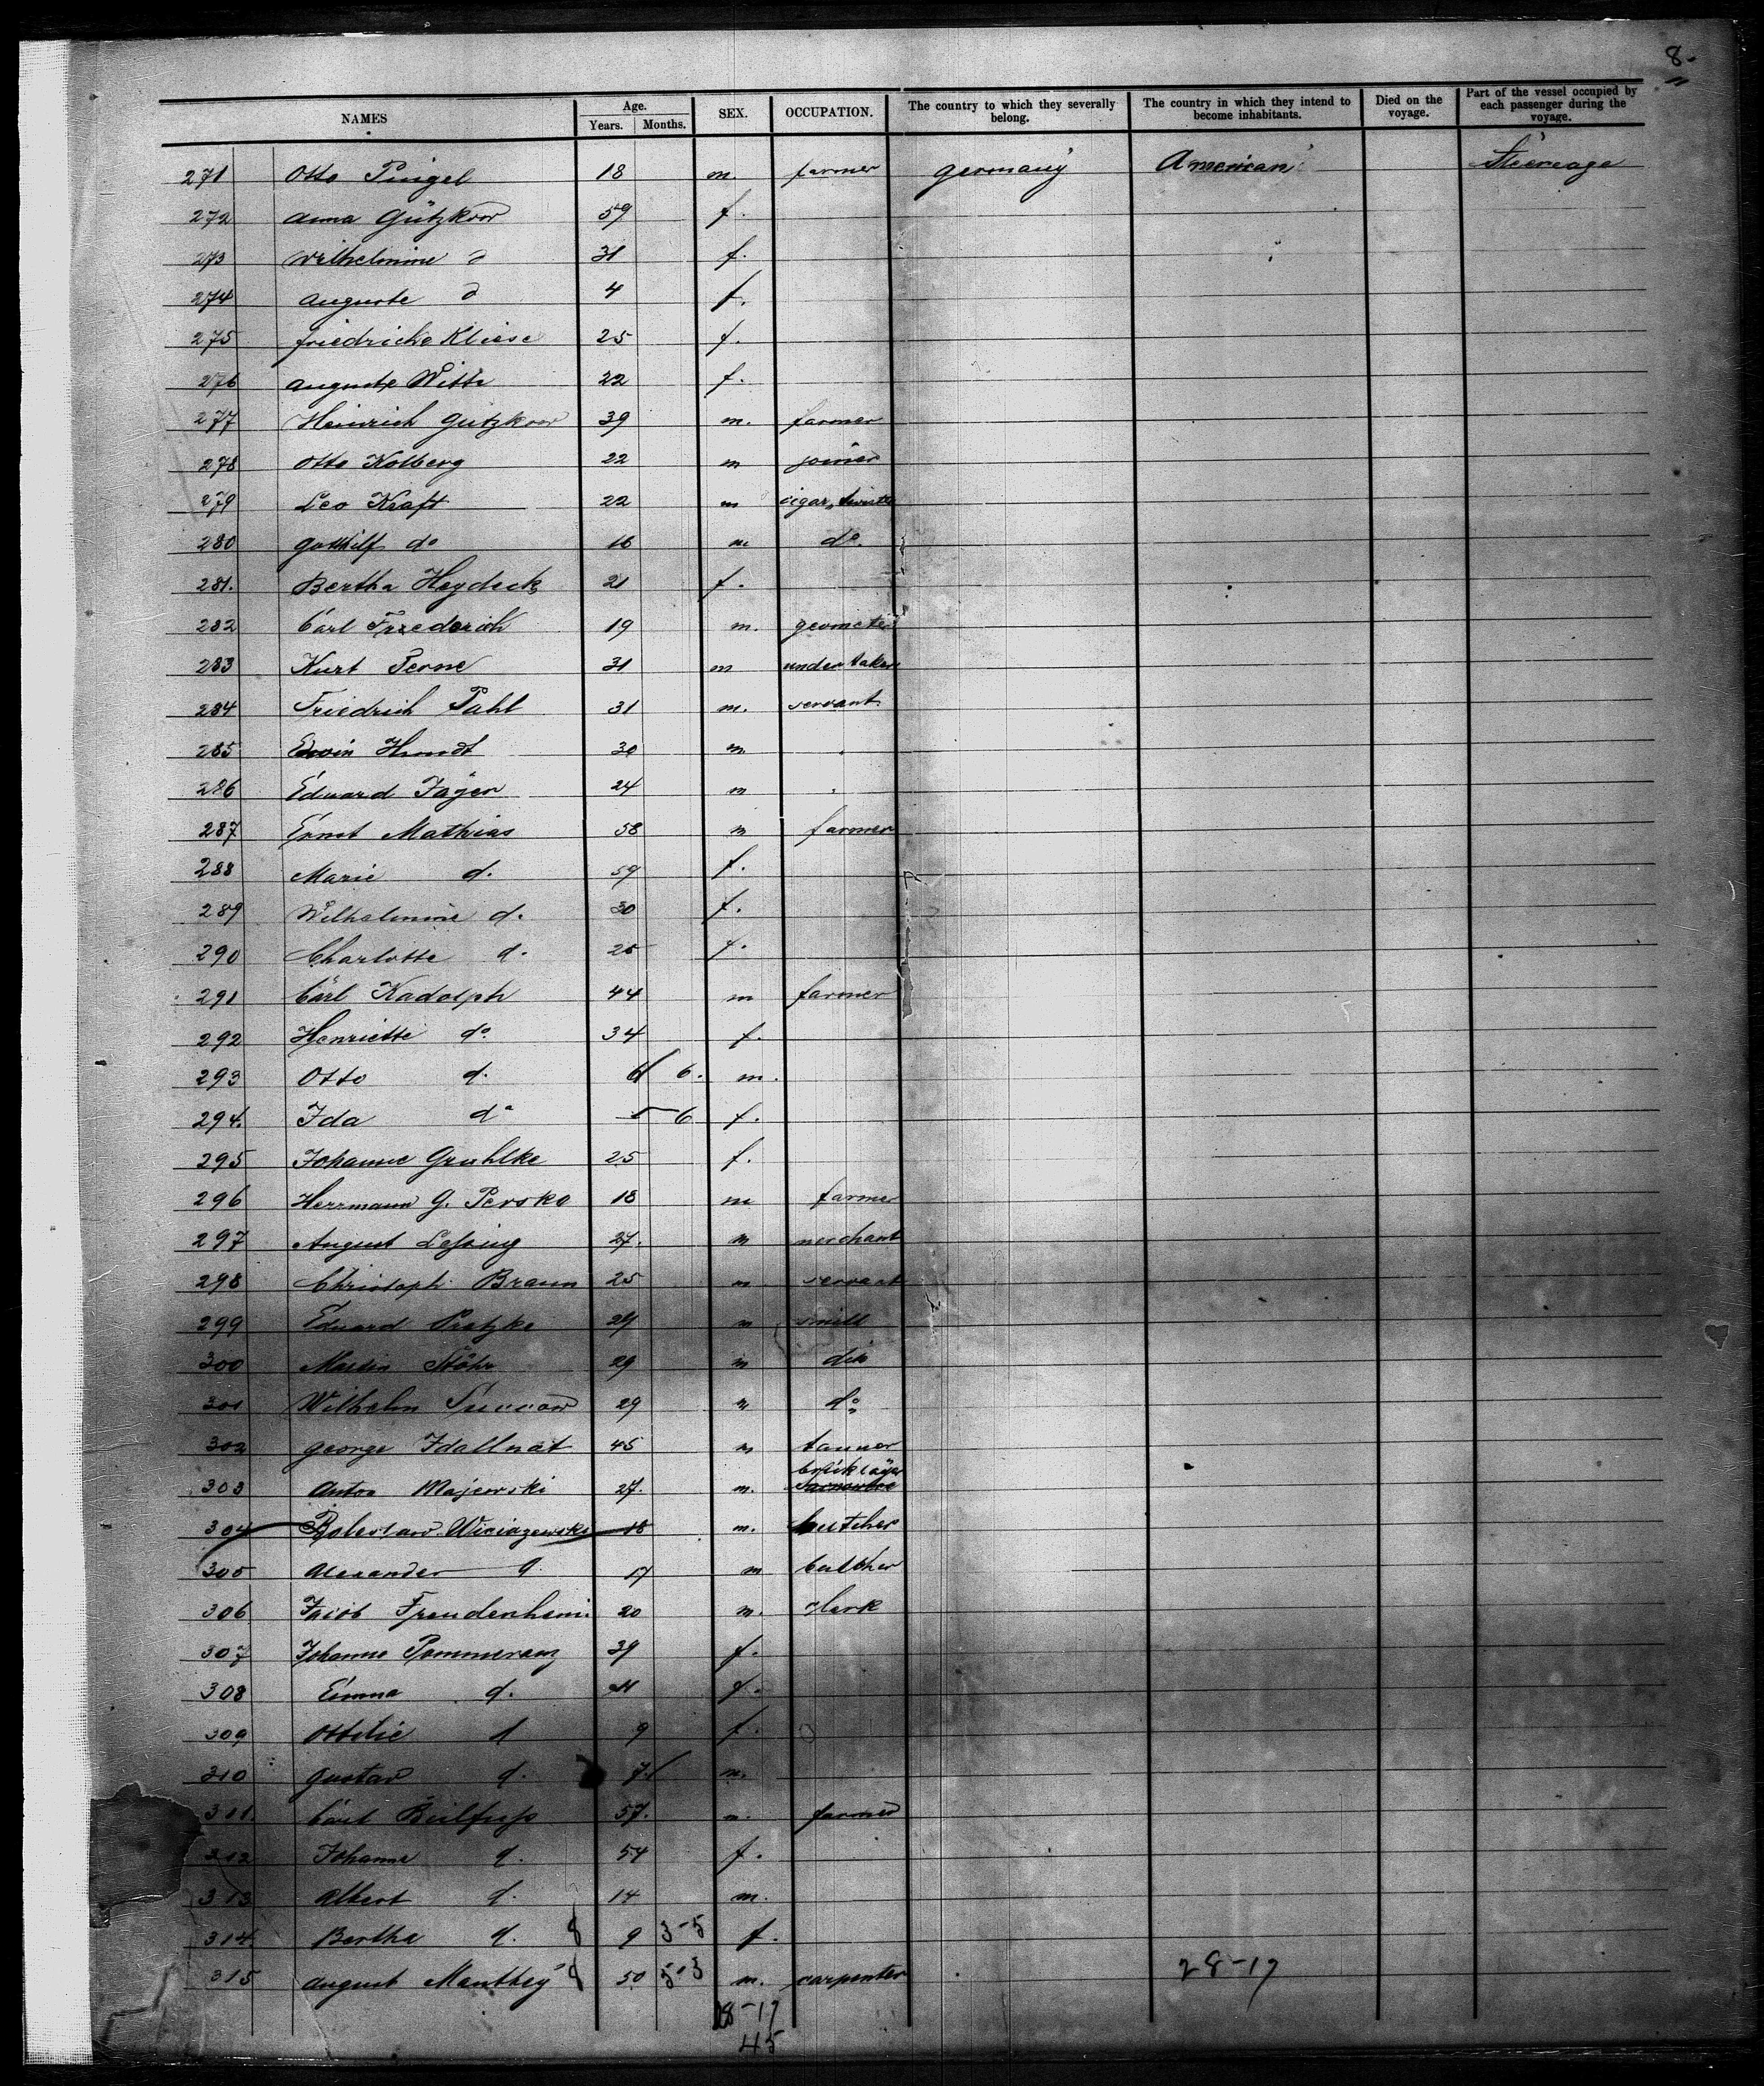 8.
NAMES Age. Years. Months. SEX. OCCUPATION. The country to which they severally belong. The country in which they intend to become inhabitants. Died on the voyage. Part of the vessel occupied by each passenger during the voyage.
271 Otto Pingel 18 m. farmer Germany American Steerage
272 Anna Gützkow 59 f.
273 Wilhelmine d 31 f.
274 Auguste d 4 f.
275 Friedricke Kliese 25 f.
276 Auguste Witte 22 f.
277 Heinrich Gützkow 39 m. farmer
278 Otto Kolberg 22 m joiner
279 Leo Kraft 22 m cigar
280 Gotthilf do 16 m do.
281. Bertha Heydeck 21 f.
282 Carl Friederich 19 m. geometer
283 Kurt Perne 31 m undertaker
284 Friedrich Pahl 31 m. servant
285 Erwin Hundt 30 m.
286 Eduard Jäger 24 m
287 Ernst Mathias 58 m farmer
288 Marie d. 59 f.
289 Wilhelmine d. 30 f.
290 Charlotte d. 25 f.
291 Carl Kadolph 44 m farmer
292 Henriette do 34 f.
293 Otto d. 6. m.
294. Ida do 6 f.
295 Johanne Gruhlke 25 f.
296 Herrmann G. Perske 18 m farmer
297 August Lessing 27. m merchant
298 Christoph Braun 25 m servant
299 Eduard Pratzke 29 m smith
300 Martin Stöhr 29 m dito
301 Wilhelm 29 m do
302 George Idallnat 45 m tanner
303 Anton Majewski 27. m. bricklayer
304 Boleslaw Wiciazewski 18 m. butcher
305 Alexander d. 17 m butcher
306 Jacob Freudenheim 20 m. clerk
307 Johanne Pommerenz 39 f.
308 Emma d. 11 f.
309 Ottilie d 9 f.
310 Gustav d. 7 m.
311. Carl 57. m. farmer
312 Johanne d. 54 f.
313 Albert d. 14 m.
314. Bertha d. 8 9 3-5 f.
315 August Manthey 8 50 5-3 m. carpenter 28-17
28-17
45